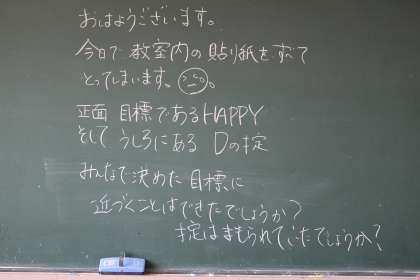 おはようございます。
今日で教室内の貼り紙をすべて
とってしまいます。
正面 目標であるHAPPY
そして うしろにある Dの掟
みんなで決めた目標に
近づくことはできたでしょうか？
掟はまもられていたでしょうか？